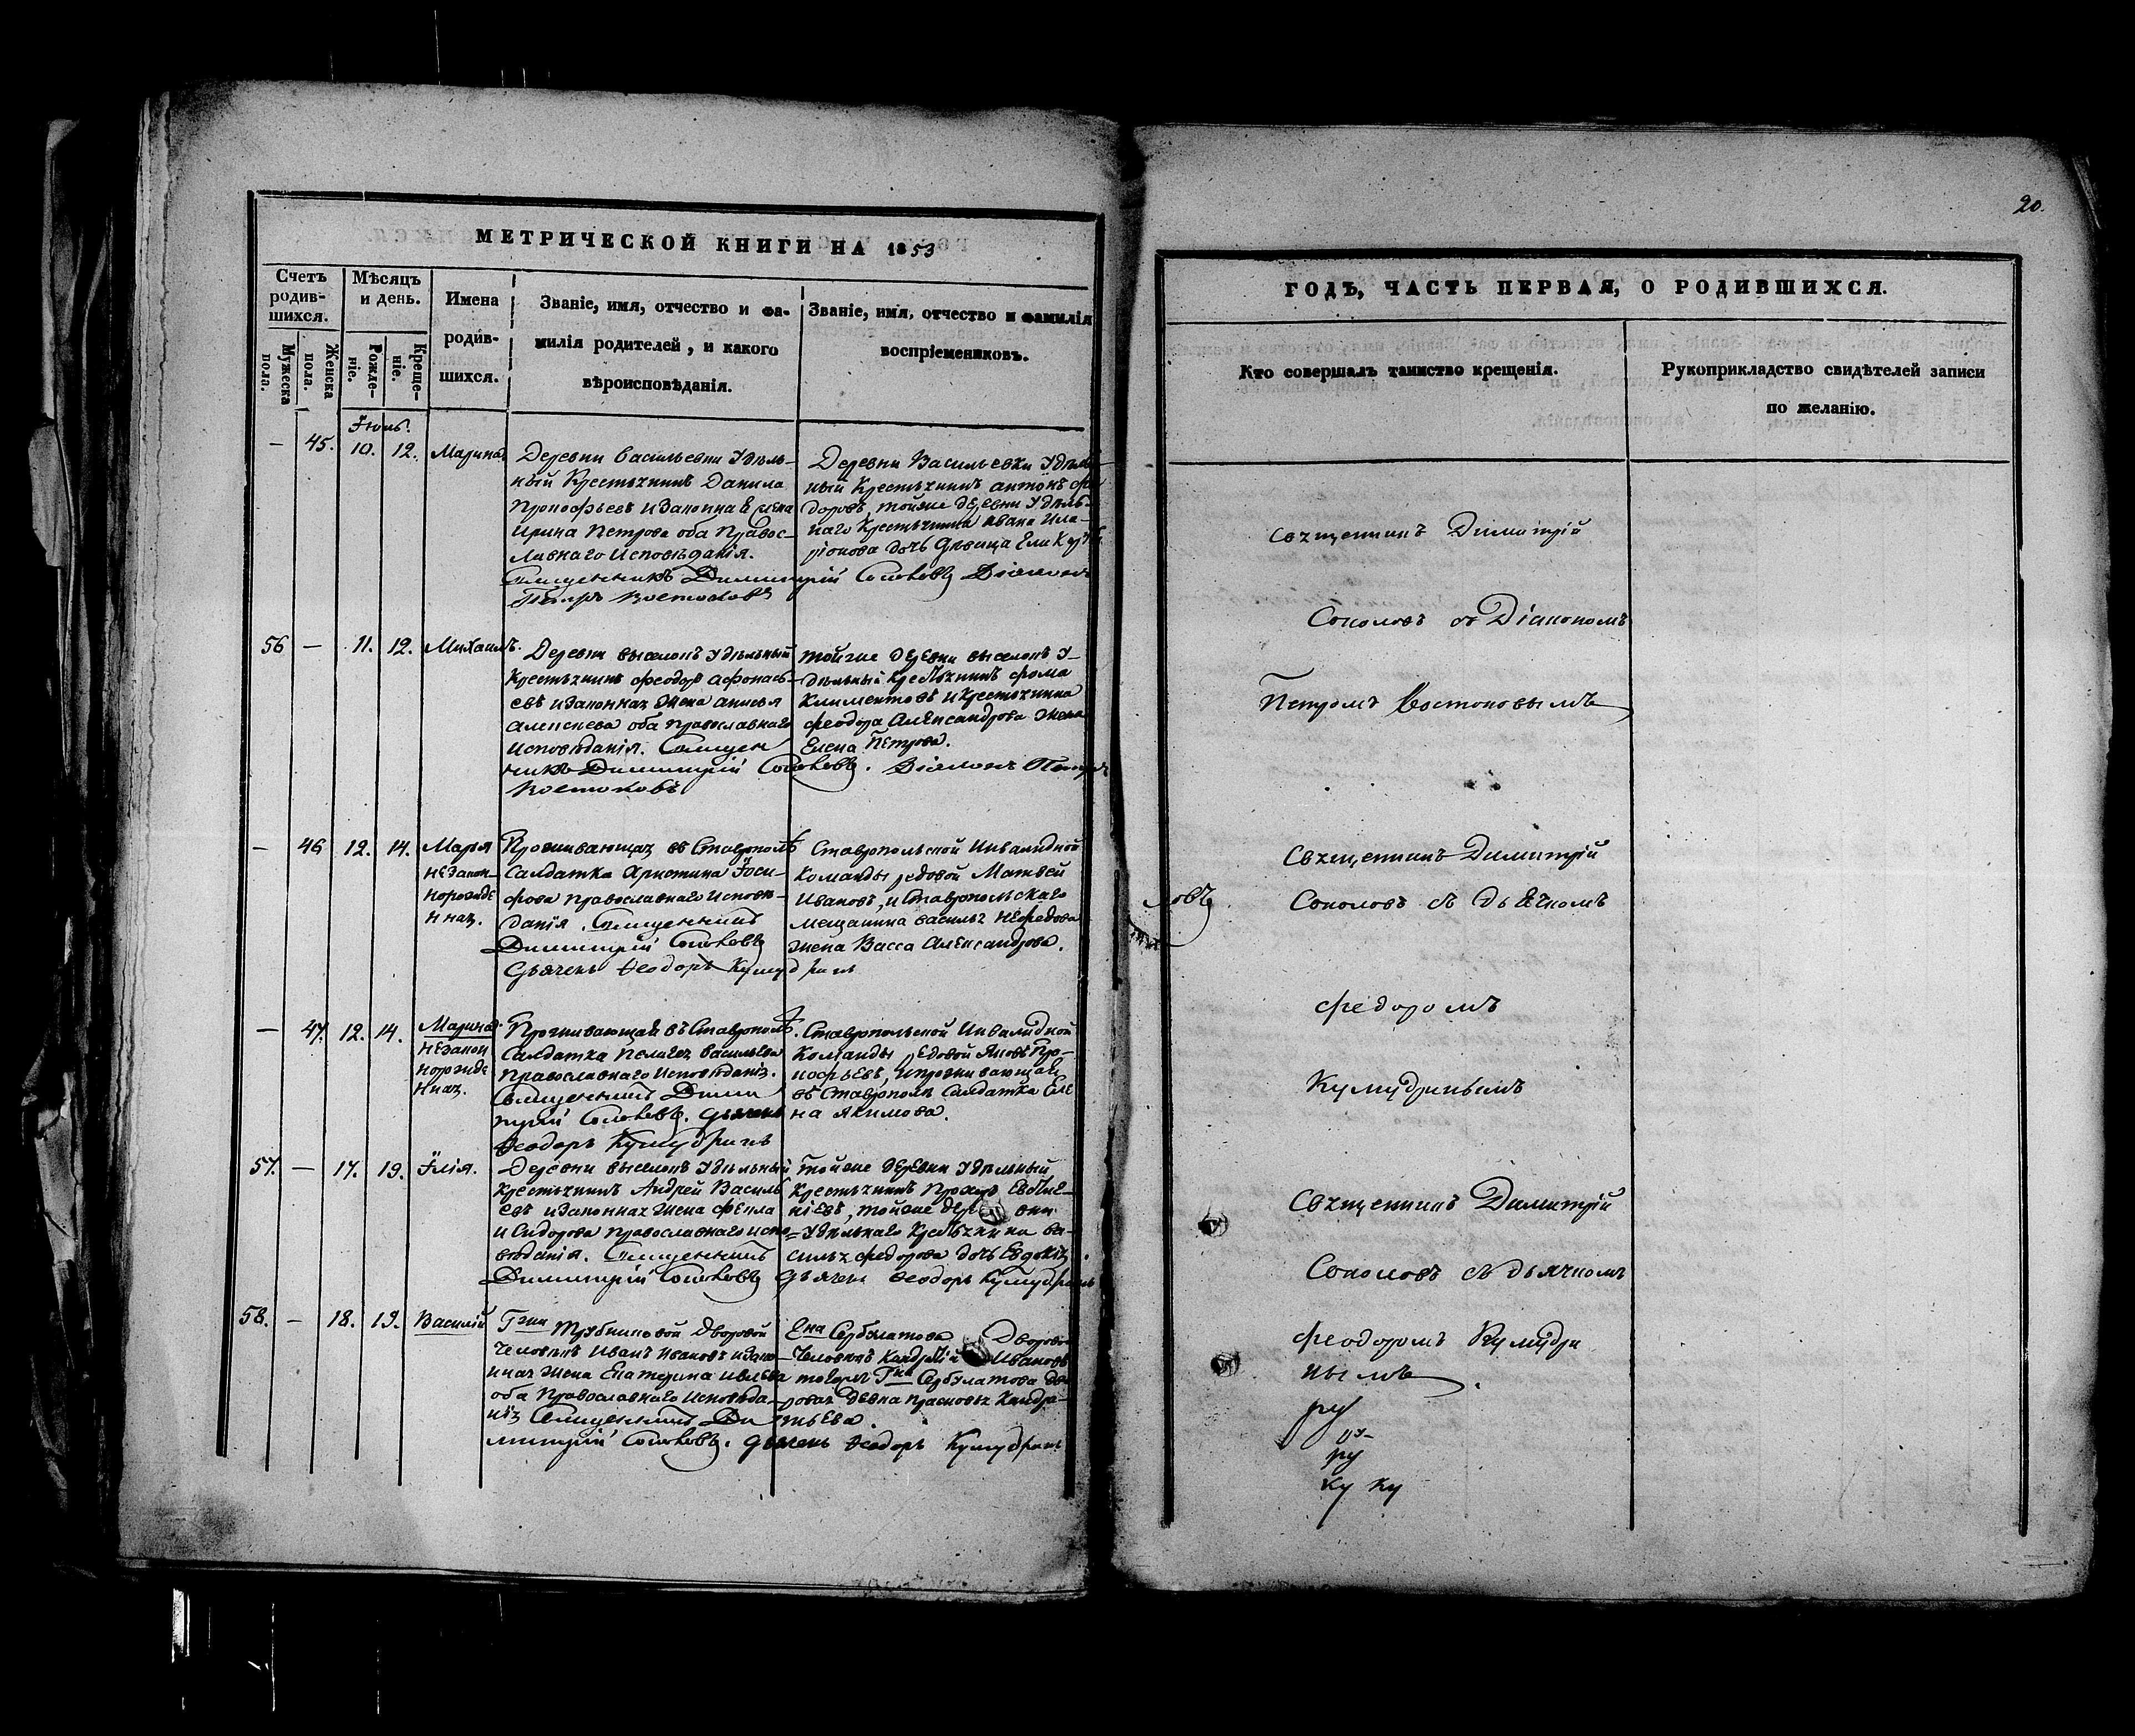 МЕТРИЧЕСКОЙ КНИГИ НА 1853
Счетъ родив-шихся.
Мужеска пола.
Женска пола.
Мѣсяцъ и день.
Рожде-ніе.
Креще-ніе.
Имена родив-шихся.
Званіе, имя, отчество и фа-
милія родителей, и какого
вѣроисповѣданія.
Званіе, имя, отчество и фамилія
воспріемниковъ.
Іюнь.
— 45. 10. 12. Марина
Деревни Васильевки Удѣль-
ный Крестьянинъ Данила
Прокофьевъ и Законная Жена
Ирина Петрова оба Правос-
лавнаго Исповѣданія.
Священникъ Димитрій Соколовъ Діаконъ
Петръ Востоковъ
Деревни Васильевки Удѣль-
ный Крестьянинъ Антонъ Фе-
доровъ, тойже деревни Удѣль-
наго Крестьянина Ивана Ила-
ріонова дочь Дѣвица
56 — 11. 12. Михаилъ.
Деревни выселокъ Удѣльный
Крестьянинъ Феодоръ Афонась-
евъ и Законная Жена Анисья
Алексеева оба православнаго
Исповѣданія. Священ
никъ Димитрій Соколовъ. Діаконъ Петръ
Востоковъ
тойже деревни выселокъ У-
дѣльный Крестьянинъ Фома
Климентовъ и Крестьянина
Феодора Александрова жена
Елена Петрова.
— 46 12. 14. Марья
незакон-
норожде
нная.
Проживающая въ Ставрополѣ
Салдатка Христина Іоси-
фова православнаго Исповѣ-
данія. Священникъ
Димитрій Соколовъ
Дьячекъ Феодоръ Кумудринъ
Ставропольской Инвалидной
Команды редовой Матвей
Ивановъ, и Ставропольскаго
Мещанина Василья Нефедова
жена Васса Александрова.
— 47. 12. 14. Марина
незакон
норожде
нная.
Проживающая въ Ставрополѣ.
Салдатка Пелагея Васильева
Православнаго Исповѣданія.
Священникъ Дими
трій Соколовъ. Дьячекъ
Феодоръ Кумудринъ
Ставропольской Инвалидной
Команды редовой Яковъ Про-
кофьевъ, и проживающая
въ Ставрополѣ Салдатка Еле
на Якимова.
57. — 17. 19. Ілія.
Деревни выселокъ Удѣльный
Крестьянинъ Андрей Василь
евъ и Законная Жена Фекла
Исидорова православнаго испо-
вѣданія. Священникъ
Димитрій Соколовъ Дьячекъ Феодоръ Кумудринъ
Тойже деревни Удѣльный
Крестьянинъ Прохоръ Евдоке-
ніевъ, тойже деревни
Удѣльнаго Крестьянина Ва-
силья Федорова дочь Евдокія.
58. — 18. 19. Василій
Гжи Трубниковой Дворовой
Человѣкъ Иванъ Ивановъ и Зако-
нная Жена Екатерина
оба Православнаго Исповѣда-
нія Священникъ Ди
митрій Соколовъ. Дьячекъ Феодоръ Кумудринъ
Сербулатова Дворовой
Человѣкъ Ивановъ
Сербулатова дво
ровая Девка Прасковья Кандра-
тьева.
20.
ГОДЪ, ЧАСТЬ ПЕРВАЯ, О РОДИВШИХСЯ.
Кто совершалъ таинство крещенія.
Рукоприкладство свидѣтелей записи
по желанію.
Священникъ Димитрій
Соколовъ съ Діакономъ
Петромъ Востоковымъ
Священникъ Димитрій
ловъ
Соколовъ съ дьячкомъ
Федоромъ
Кумудринымъ
Священникъ Димитрій
Соколовъ съ дьячкомъ
Феодоромъ Кумудри
нымъ
ру
ру
ку ку